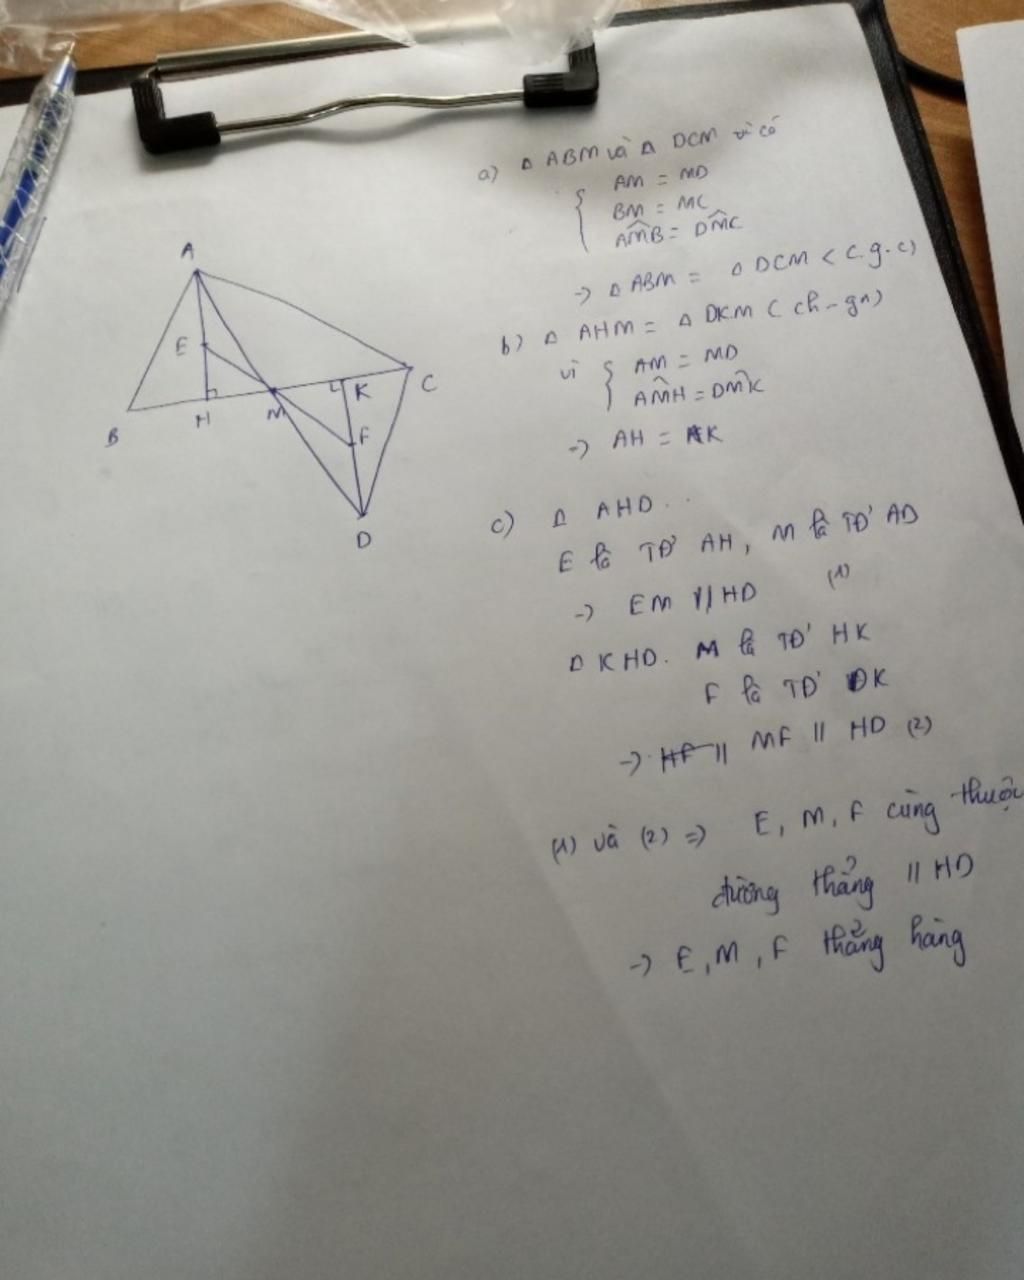 A
E
B
H
M
K
C
F
D
a) Δ ABM và Δ DCM vì có
AM = MD
BM = MC
AM̂B = DM̂C
-> Δ ABM = Δ DCM < c.g.c)
b) Δ AHM = Δ DKM ( ch-gn)
vì AM = MD
AM̂H = DM̂K
-> AH = K
c) Δ AHD.
E là TĐ' AH, M là TĐ' AD
-> EM // HD (1)
Δ KHD. M là TĐ' HK
F là TĐ' DK
-> HF // MF // HD (2)
(1) và (2) => E, M, F cùng thuộc
đường thẳng // HD
-> E, M, F thẳng hàng